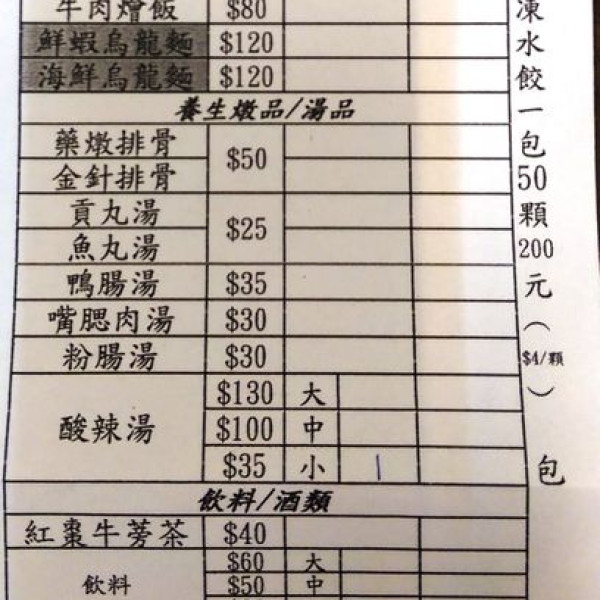 牛肉燴飯 $80
鮮蝦烏龍麵 $120
海鮮烏龍麵 $120
養生燉品/湯品
藥燉排骨 $50
金針排骨
貢丸湯 $25
魚丸湯
鴨腸湯 $35
嘴腮肉湯 $30
粉腸湯 $30
酸辣湯 $130 大
$100 中
$35 小 1
飲料/酒類
紅棗牛蒡茶 $40
飲料 $60 大
$50 中
凍水餃一包50顆200元($4/顆) 包